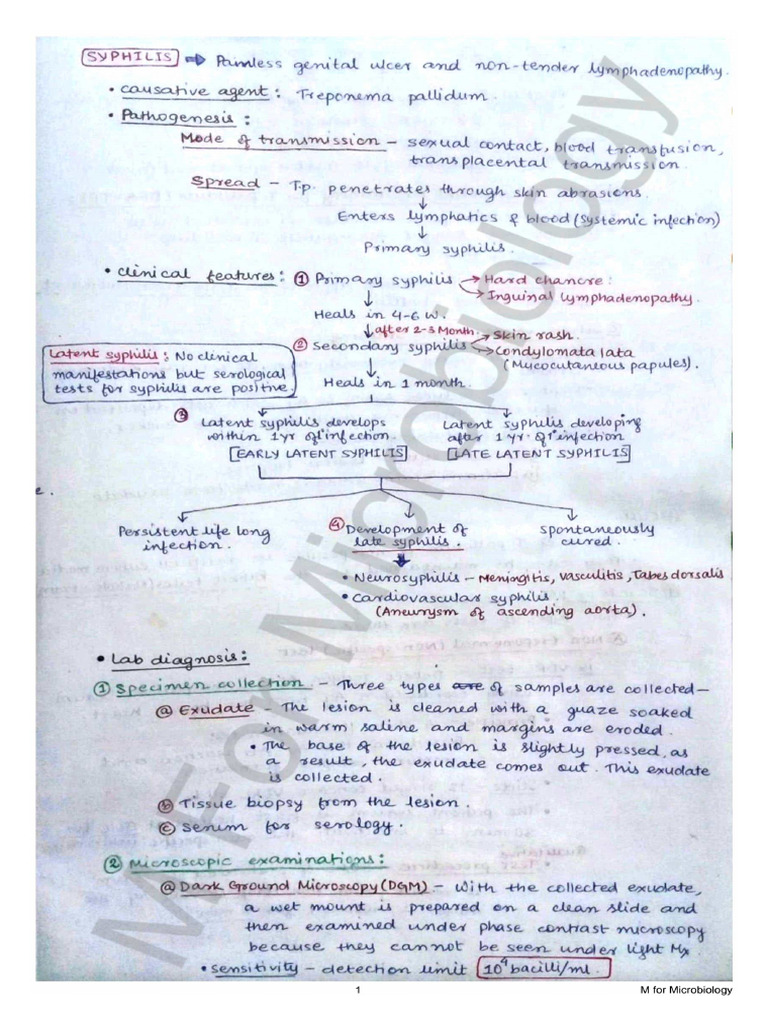 SYPHILIS ⇒ Painless genital ulcer and non-tender lymphadenopathy.
• Causative agent : Treponema pallidum.
• Pathogenesis :
Mode of transmission – sexual contact, blood transfusion,
transplacental transmission.
Spread – T.p. penetrates through skin abrasions.
↓
Enters lymphatics & blood (Systemic infection)
↓
Primary syphilis.
• Clinical features : ① Primary syphilis → Hard chancre :
→ Inguinal lymphadenopathy.
↓
Heals in 4-6 w.
↓ after 2-3 Month.
② Secondary syphilis → Skin rash.
→ Condylomata lata
(Mucocutaneous papules).
↓
Heals in 1 month.
Latent syphilis : No clinical
manifestations but serological
tests for syphilis are positive.
③ Latent syphilis develops
within 1 yr of 1° infection.
[EARLY LATENT SYPHILIS]
Latent syphilis developing
after 1 yr. of 1° infection
[LATE LATENT SYPHILIS]
e.
Persistent life long
infection.
④ Development of
late syphilis.
Spontaneously
cured.
• Neurosyphilis – Meningitis, vasculitis, Tabes dorsalis
• Cardiovascular syphilis.
(Aneurysm of ascending aorta).
• Lab diagnosis :
① Specimen collection – Three types are of samples are collected –
ⓐ Exudate – The lesion is cleaned with a guaze soaked
in warm saline and margins are eroded.
• The base of the lesion is slightly pressed, as
a result, the exudate comes out. This exudate
is collected.
ⓑ Tissue biopsy from the lesion.
ⓒ Serum for serology.
② Microscopic examinations :
ⓐ Dark Ground Microscopy (DGM) – With the collected exudate,
a wet mount is prepared on a clean slide and
then examined under phase contrast microscopy
because they cannot be seen under light Mx.
• Sensitivity – detection limit 10⁴ bacilli/ml.
M For Microbiology
1
M for Microbiology